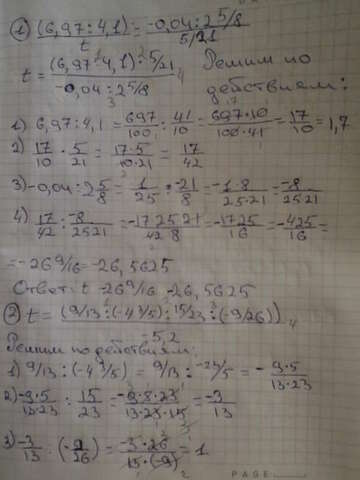 ① (6,97:4,1)/t = -0,04:2 5/8 / 5/21
t = (6,97:4,1)·5/21 / -0,04:2 5/8 Решим по
действиям:
1) 6,97:4,1 = 697/100 : 41/10 = 697·10/100·41 = 17/10 = 1,7
2) 17/10 · 5/21 = 17·5/10·21 = 17/42
3) -0,04:2 5/8 = 1/25 : -21/8 = -1·8/25·21 = -8/25·21
4) 17/42 : -8/25·21 = -17·25·21/42·8 = -17·25/16 = -425/16 =
= -26 9/16 = -26,5625
Ответ: t -26 9/16 -26,5625
② t = (9/13:(-4 3/5):15/23:(-9/26))
-5,2
Решим по действиям:
1) 9/13:(-4 3/5) = 9/13: -23/5 = - 9·5/13·23
2) -9·5/13·23 : 15/23 = -9·8·23/13·23·15 = -3/13
3) -3/13 : (-9/26) = -3·26/13·(-9) = 1.
PAGE